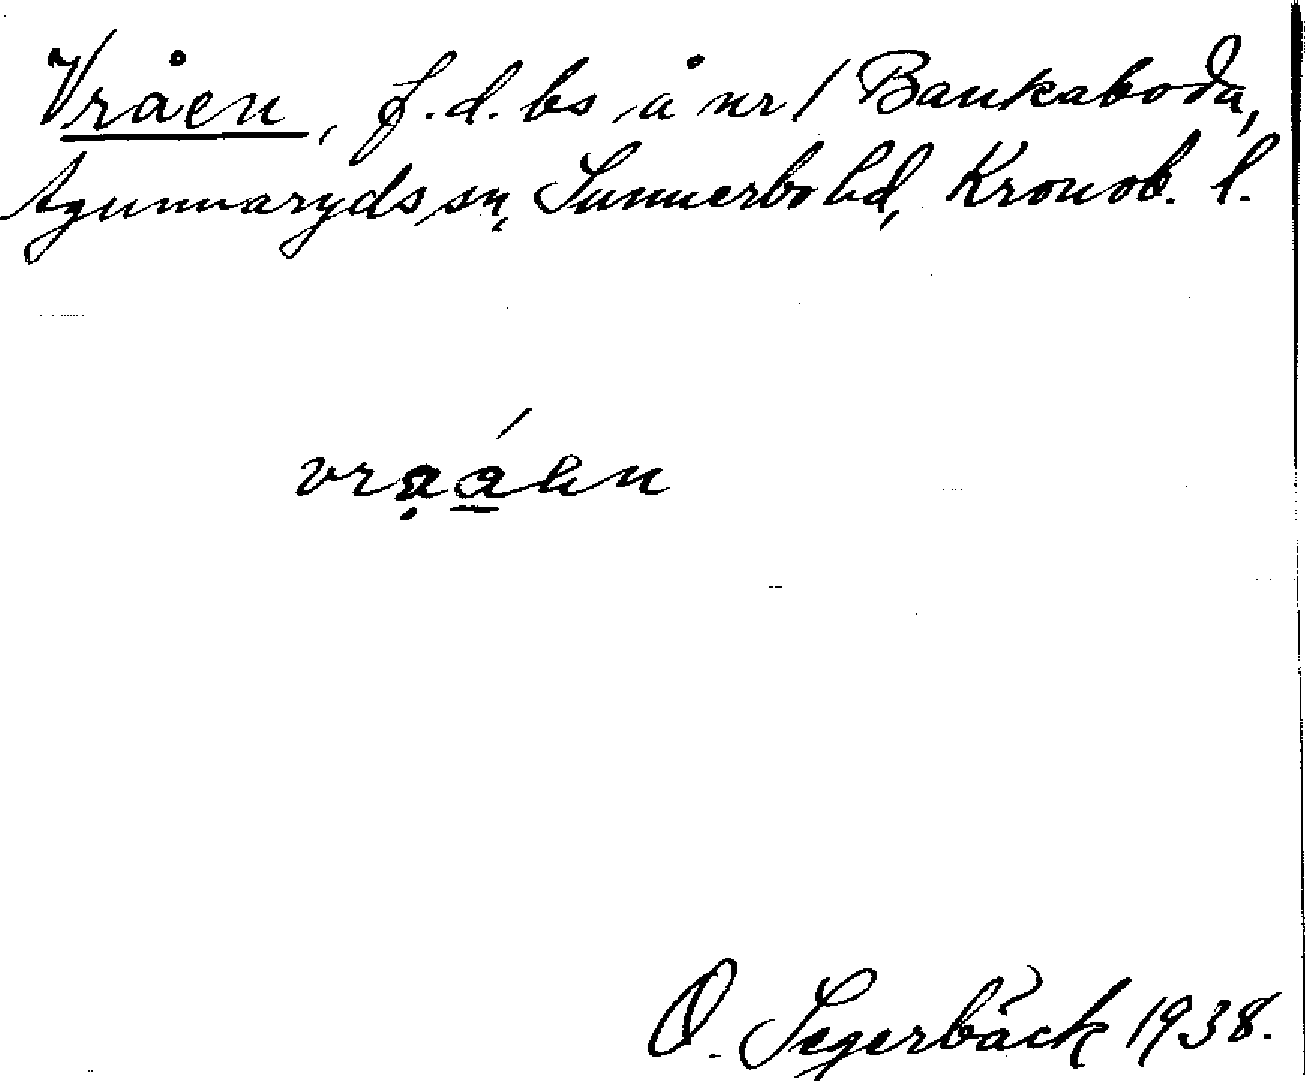 Vråen, f.d. bs å nr 1 Bankaboda,
Agunnaryds sn, Sunnerbo hd, Kronob. l.
O. Segerbäck 1938.